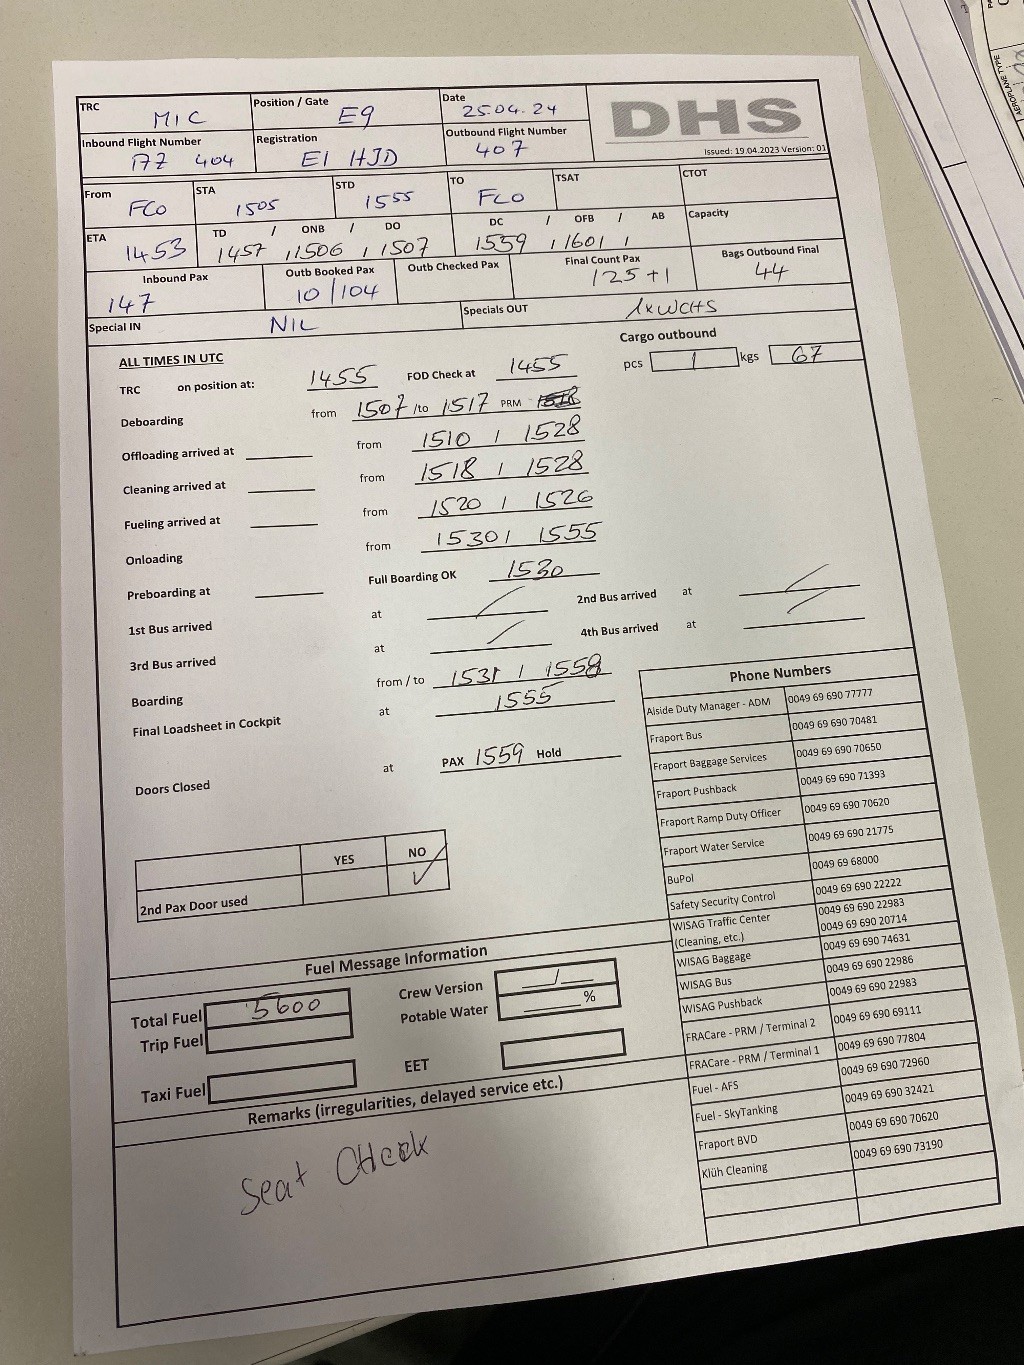 TRC MIC Position / Gate E9 Date 25.04.24 DHS
Issued: 19.04.2023 Version: 01
Inbound Flight Number AZ 404 Registration EI HJD Outbound Flight Number 407
From FCO STA 1505 STD 1555 TO FCO TSAT CTOT
ETA 1453 TD / ONB / DO 1457 / 1506 / 1507 DC / OFB / AB 1559 / 1601 / Capacity
Inbound Pax 147 Outb Booked Pax 10/104 Outb Checked Pax Final Count Pax 125+1 Bags Outbound Final 44
Special IN NIL Specials OUT 1xWCHS
ALL TIMES IN UTC Cargo outbound
TRC on position at: 1455 FOD Check at 1455 pcs 1 kgs 67
Deboarding from 1507 /to 1517 PRM
Offloading arrived at from 1510 / 1528
Cleaning arrived at from 1518 / 1528
Fueling arrived at from 1520 / 1526
Onloading from 1530 / 1555
Preboarding at Full Boarding OK 1530
1st Bus arrived at / 2nd Bus arrived at /
3rd Bus arrived at / 4th Bus arrived at /
Boarding from / to 1531 / 1558
Final Loadsheet in Cockpit at 1555
Doors Closed at PAX 1559 Hold
YES NO
2nd Pax Door used ✓
Phone Numbers
Alside Duty Manager - ADM 0049 69 690 77777
Fraport Bus 0049 69 690 70481
Fraport Baggage Services 0049 69 690 70650
Fraport Pushback 0049 69 690 71393
Fraport Ramp Duty Officer 0049 69 690 70620
Fraport Water Service 0049 69 690 21775
BuPol 0049 69 68000
Safety Security Control 0049 69 690 22222
WISAG Traffic Center 0049 69 690 22983
(Cleaning, etc.) 0049 69 690 20714
WISAG Baggage 0049 69 690 74631
WISAG Bus 0049 69 690 22986
WISAG Pushback 0049 69 690 22983
FRACare - PRM / Terminal 2 0049 69 690 69111
FRACare - PRM / Terminal 1 0049 69 690 77804
Fuel - AFS 0049 69 690 72960
Fuel - SkyTanking 0049 69 690 32421
Fraport BVD 0049 69 690 70620
Klüh Cleaning 0049 69 690 73190
Fuel Message Information
Total Fuel 5600 Crew Version /
Trip Fuel Potable Water %
Taxi Fuel EET
Remarks (irregularities, delayed service etc.)
Seat CHeck
AEROPLANE TYPE